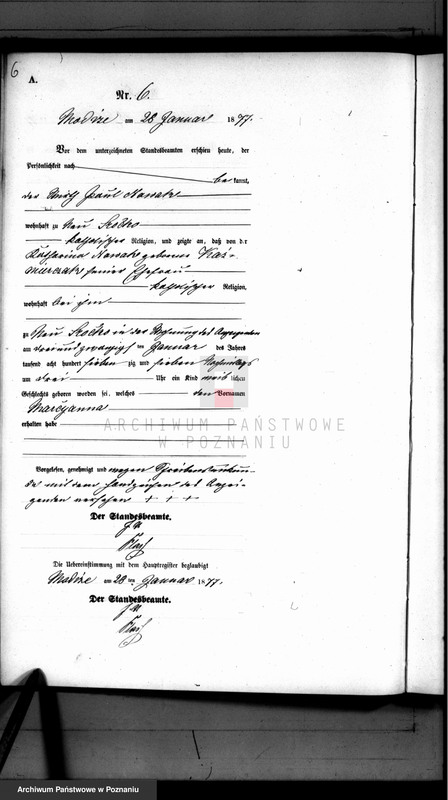 6
A.
Nr. 6.
am 28 Januar 1877.
Vor dem unterzeichneten Standesbeamten erschien heute, der
Persönlichkeit nach
be kannt,
der Wirth Paul Nowak
wohnhaft zu Neu
katholischer Religion, und zeigte an, daß von der
Katharina Nowak geborene Kaź-
mierczak, seiner Ehefrau
katholischer Religion,
wohnhaft bei ihm
zu Neu in der Wohnung des Anzeigenden
am dreiundzwanzigsten Januar des Jahres
tausend acht hundert sieben zig und sieben Nachmittags
um drei Uhr ein Kind weib lichen
Geschlechts geboren worden sei, welches den Vornamen
Marcyanna
erhalten habe
ARCHIWUM PAŃSTWOWE
W POZNANIU
Vorgelesen, genehmigt und wegen Schreibensunkun-
de mit dem Handzeichen des Anzei-
genden versehen + + +
Der Standesbeamte.
Die Uebereinstimmung mit dem Hauptregister beglaubigt
am 28 ten Januar 1877.
Der Standesbeamte.
Archiwum Państwowe w Poznaniu